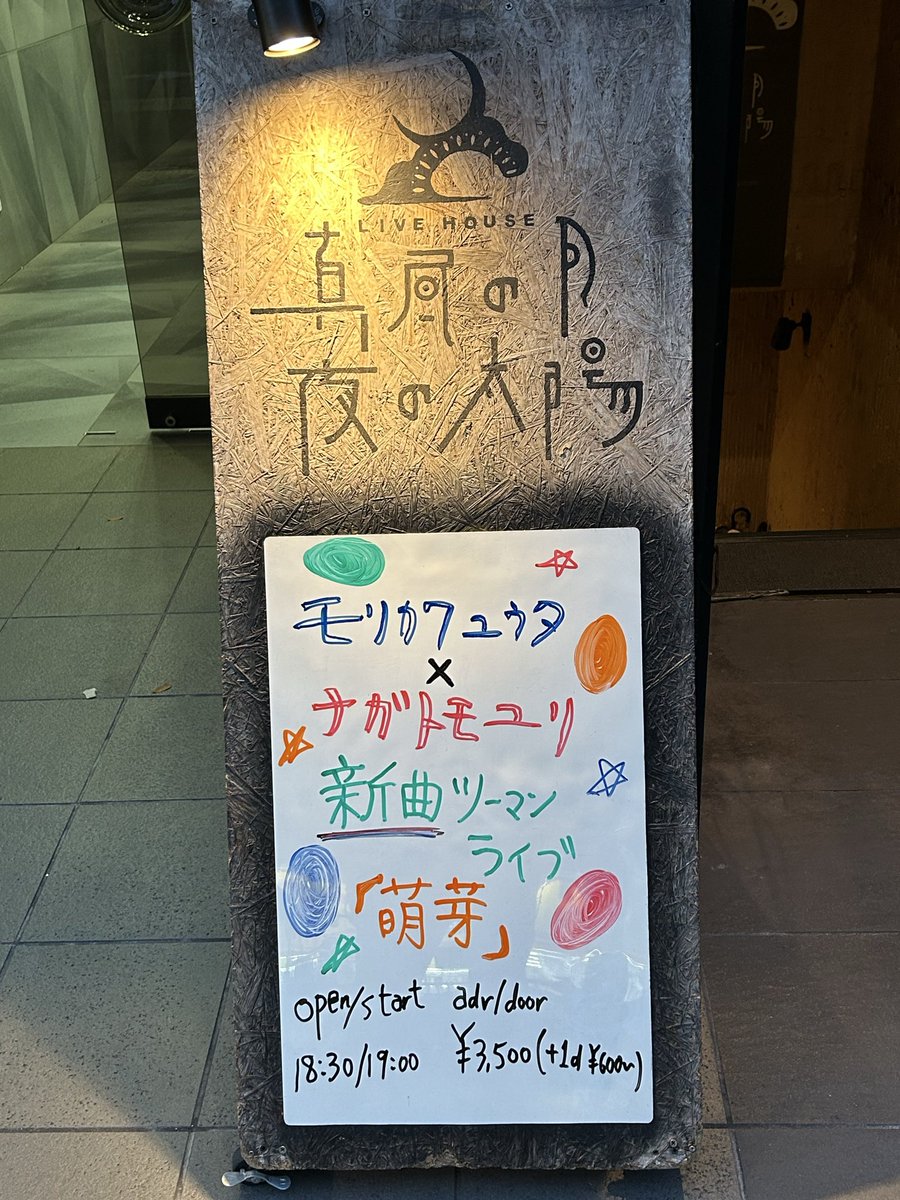 LIVE HOUSE
真昼の月
夜の太陽
モリカワユウタ
×
ナガトモユリ
新曲ツーマン
ライブ
「萌芽」
open/start adv/door
18:30/19:00 ¥3,500(+1d ¥600~)
月
陽